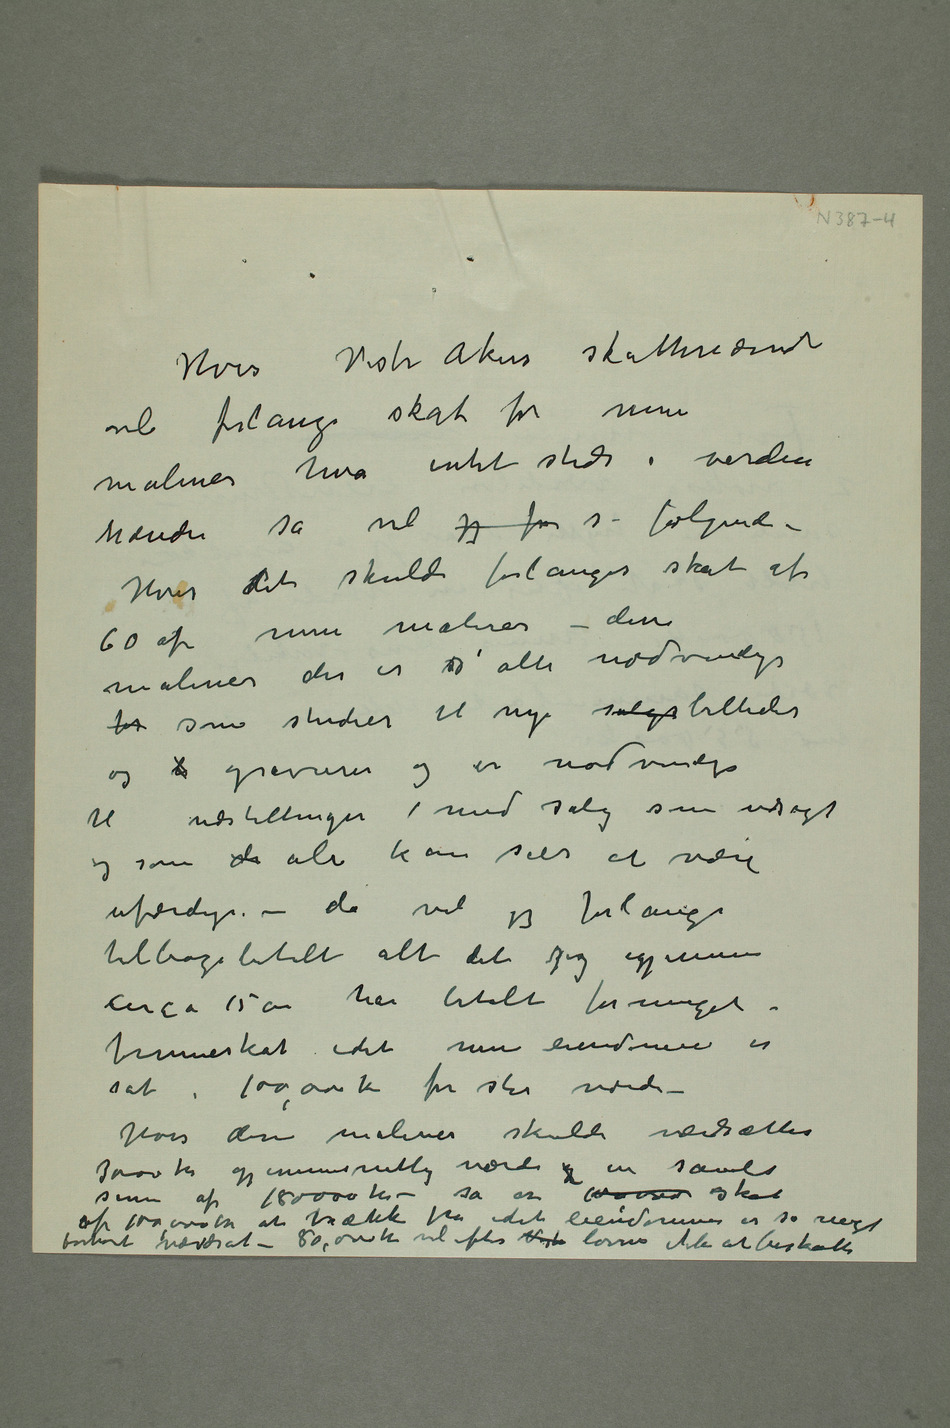 N387-4
Hvis Vestr Akers skattvæsend
vil forlange skat for mine
malerier hva intet steds i verden
hænder sa vil jeg for s– følgende –
Hvis det skulde forlanges skat af
60 af mine malerier – disse
malerier der er alle nødvendige
for som studier til nye salgsbilleder
og gravurer og er nødvendige
til udstillinger / med salg som udsagt
og som de alle kan sees at være
ufærdige. – da vil jeg forlange
tilbagebetalt alt det jeg igjennem
circa 15 år har betalt formeget i
formueskat idet mine eiendomme er
sat i 100,000 kr for stor værdi –
Hvis disse malerier skulde værdsættes
3000 kr gjennemsnitlig værdi og en samlet
sum af 180000 kr – så er skat
af 100,000 kr at trække fra idet eiendommer er så meget
forhøit værdsat – 80,000 kr vil efter loven ikke at beskatte